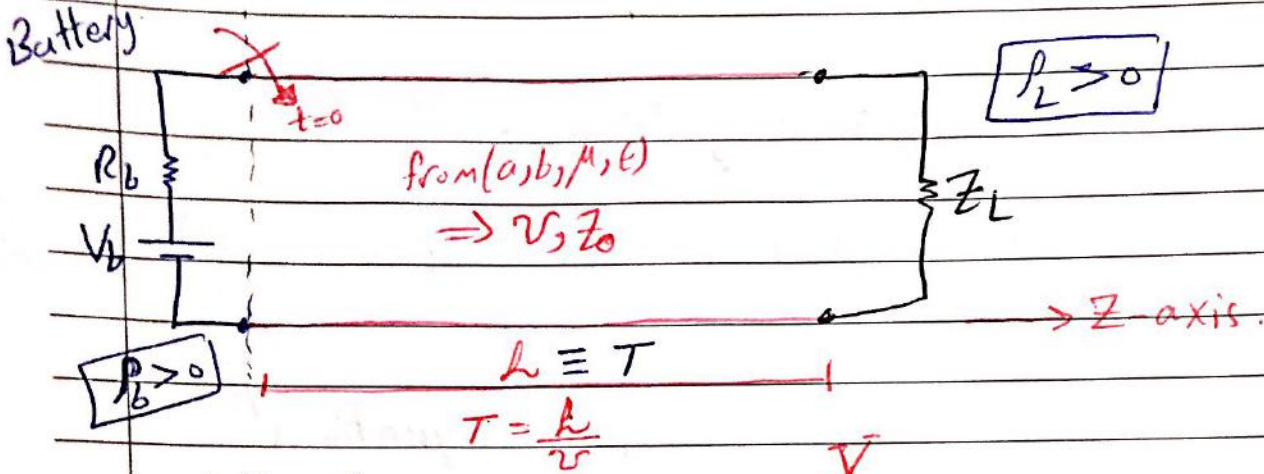 Battery
ρ_L > 0
t=0
R_b
from(a,b,μ,ε)
⇒ v, Z₀
Z_L
V_b
→ Z-axis.
ρ_b > 0
L ≡ T
T = L/v
V